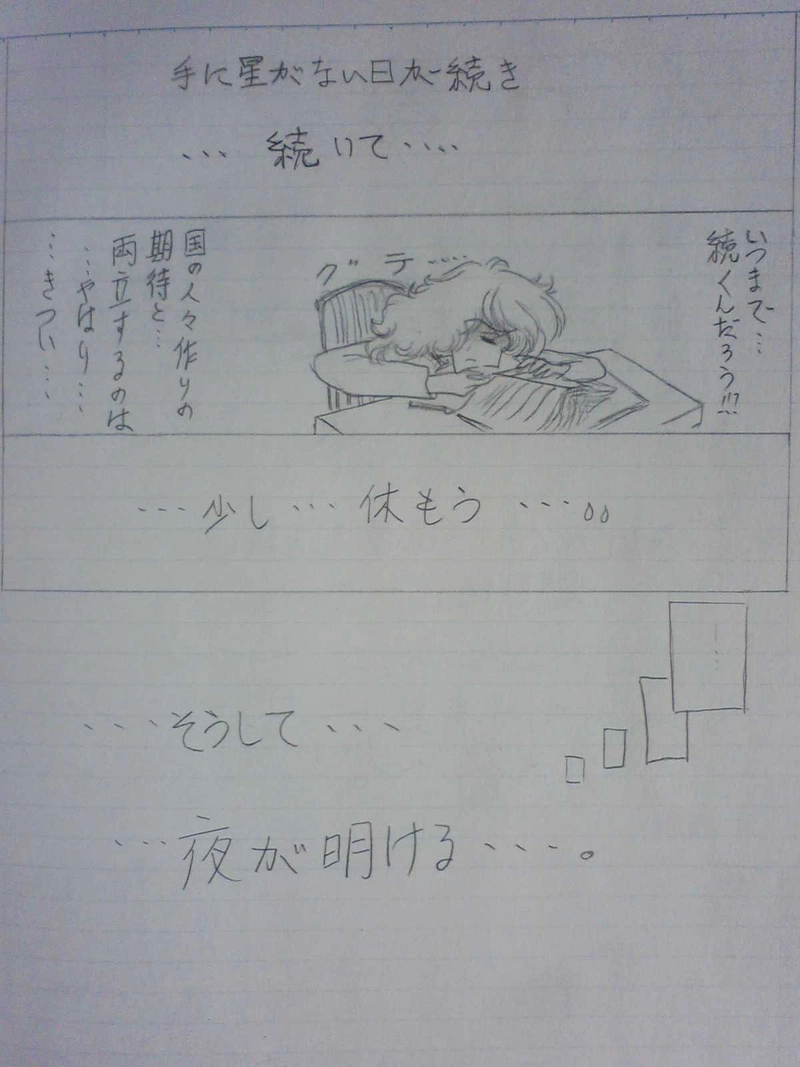 手に星がない日が続き
… 続いて‥‥
いつまで…
続くんだろう!!?
グテ……
国の人々作りの
期待と…
両立するのは
…やはり…
…きつい…
…少し…休もう…。。
…そうして…
…夜が明ける…。